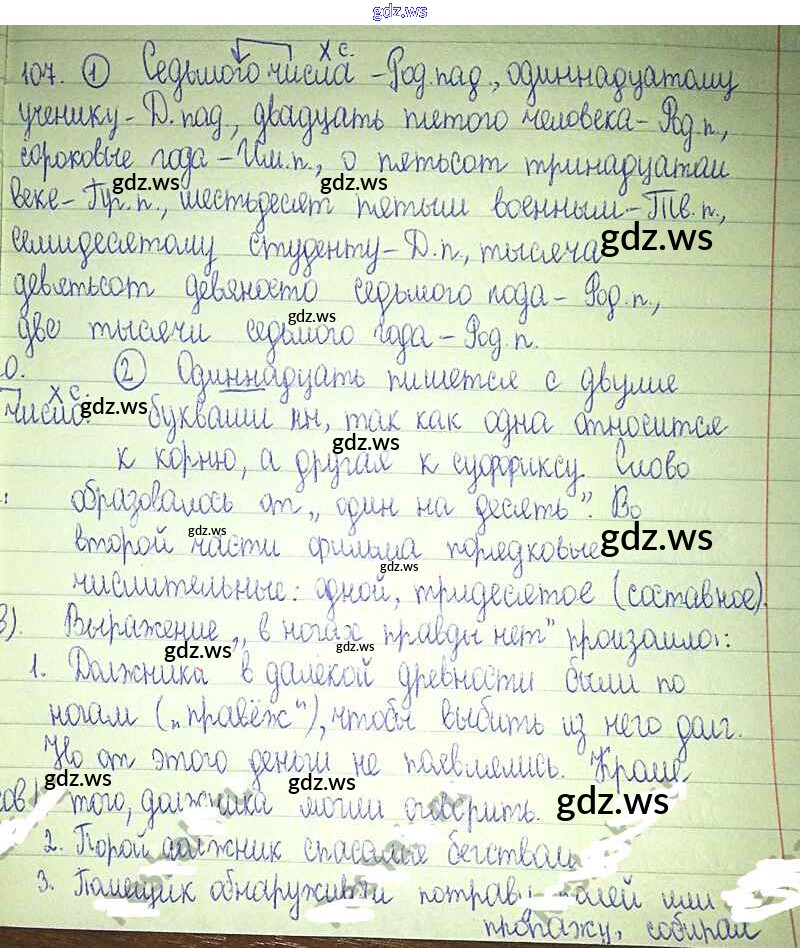 gdz.ws
107. ① Седьмого числа - Род. пад., одиннадцатому
х с.
ученику - Д. пад., двадцать пятого человека - Род. п.,
сороковые года - Им. п., о пятьсот тринадцатом
веке - Пр. п., шестьдесят пятым военным - Тв. п.,
семидесятому студенту - Д. п., тысяча
девятьсот девяносто седьмого года - Род. п.,
две тысячи седьмого года - Род. п.
② Одиннадцать пишется с двумя
х с.
числа. буквами нн, так как одна относится
к корню, а другая к суффиксу. Слово
образовалось от „один на десять". Во
второй части фильма порядковые
числительные: одной, тридесятое (составное).
3). Выражение „в ногах правды нет" произошло:
1. Должника в далёкой древности были по
ногам („правёж"), чтобы выбить из него долг.
Но от этого деньги не появлялись. Кроме
того, должника могли
2. Порой должник спасался бегством
3. Помещик обнаружив полей или
пропажу, собирал
gdz.ws
gdz.ws
gdz.ws
gdz.ws
gdz.ws
gdz.ws
gdz.ws
gdz.ws
gdz.ws
gdz.ws
gdz.ws
gdz.ws
gdz.ws
gdz.ws